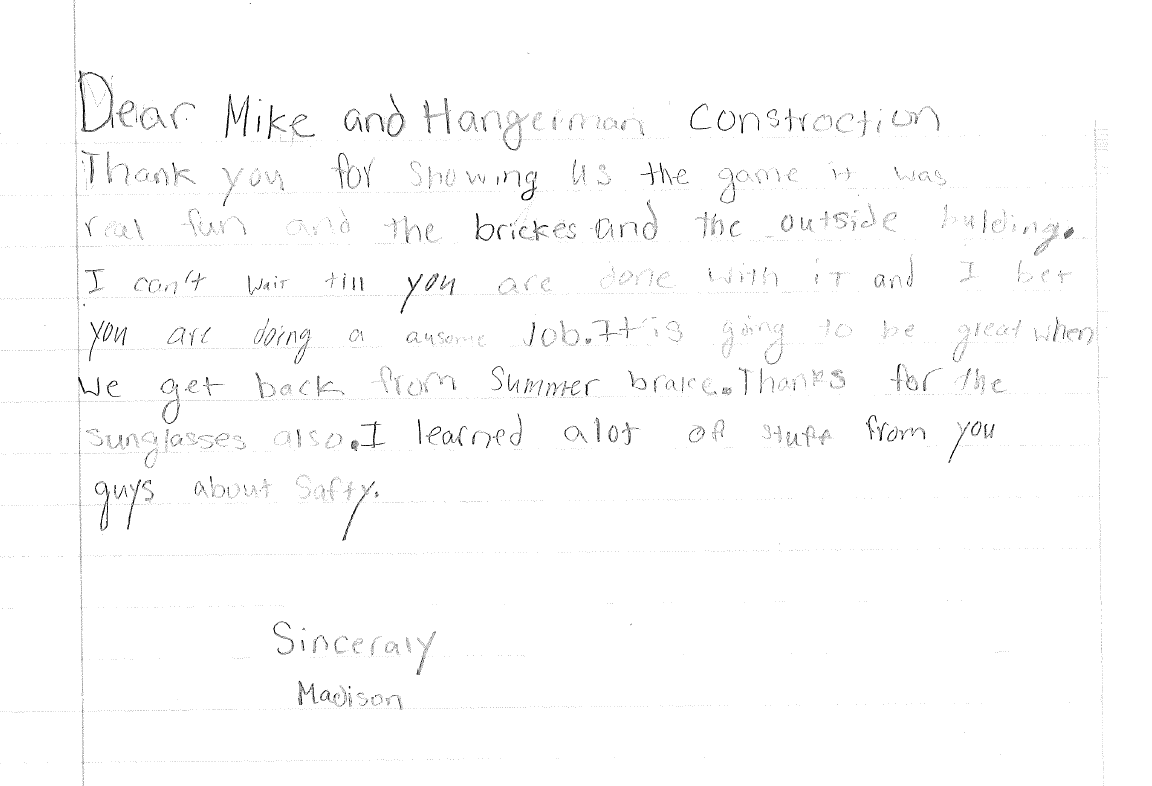 Dear Mike and Hangerman Constroction
Thank you for showing us the game it was
real fun and the brickes and the outside bulding.
I can't wait till you are done with it and I bet
you are doing a ausome Job. It is going to be great when
we get back from Summer brake. Thanks for the
sunglasses also. I learned alot of stuff from you
guys about Safty.
Sinceraly
Madison